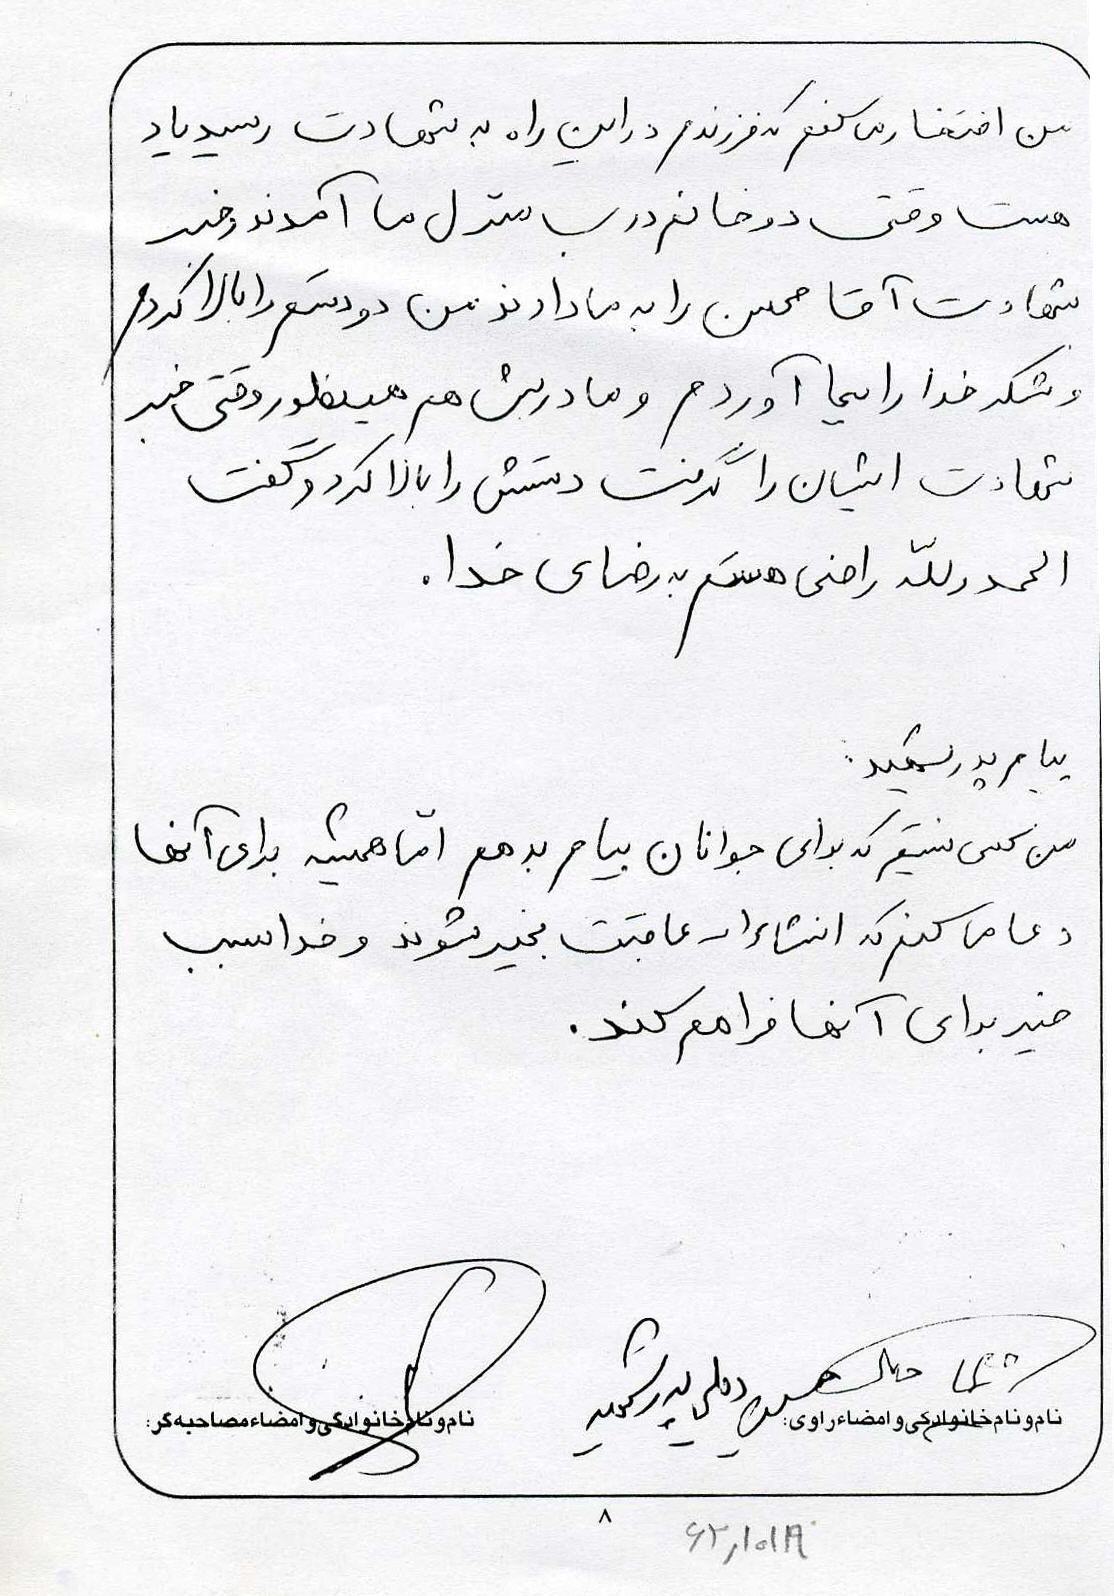 من افتخار می کنم که فرزندم در این راه به شهادت رسید یاد
هست وقتی دو خانم درب منزل ما آمدند و خبر
شهادت آقا محسن را به ما دادند من دو دستم را بالا کردم
و شکر خدا را بجا آوردم و مادرش هم همینطور وقتی خبر
شهادت ایشان را گرفت دستش را بالا کرد و گفت
الحمدلله راضی هستم به رضای خدا.
پیام پدر شهید:
من کسی نیستم که برای جوانان پیام بدهم امّا همیشه برای آنها
دعا می کنم که انشاءا... عاقبت بخیر شوند و خدا سبب
خیر برای آنها فراهم کند.
پدر شهید
نام و نام خانوادگی و امضاء راوی:
نام و نام خانوادگی و امضاء مصاحبه گر:
۸